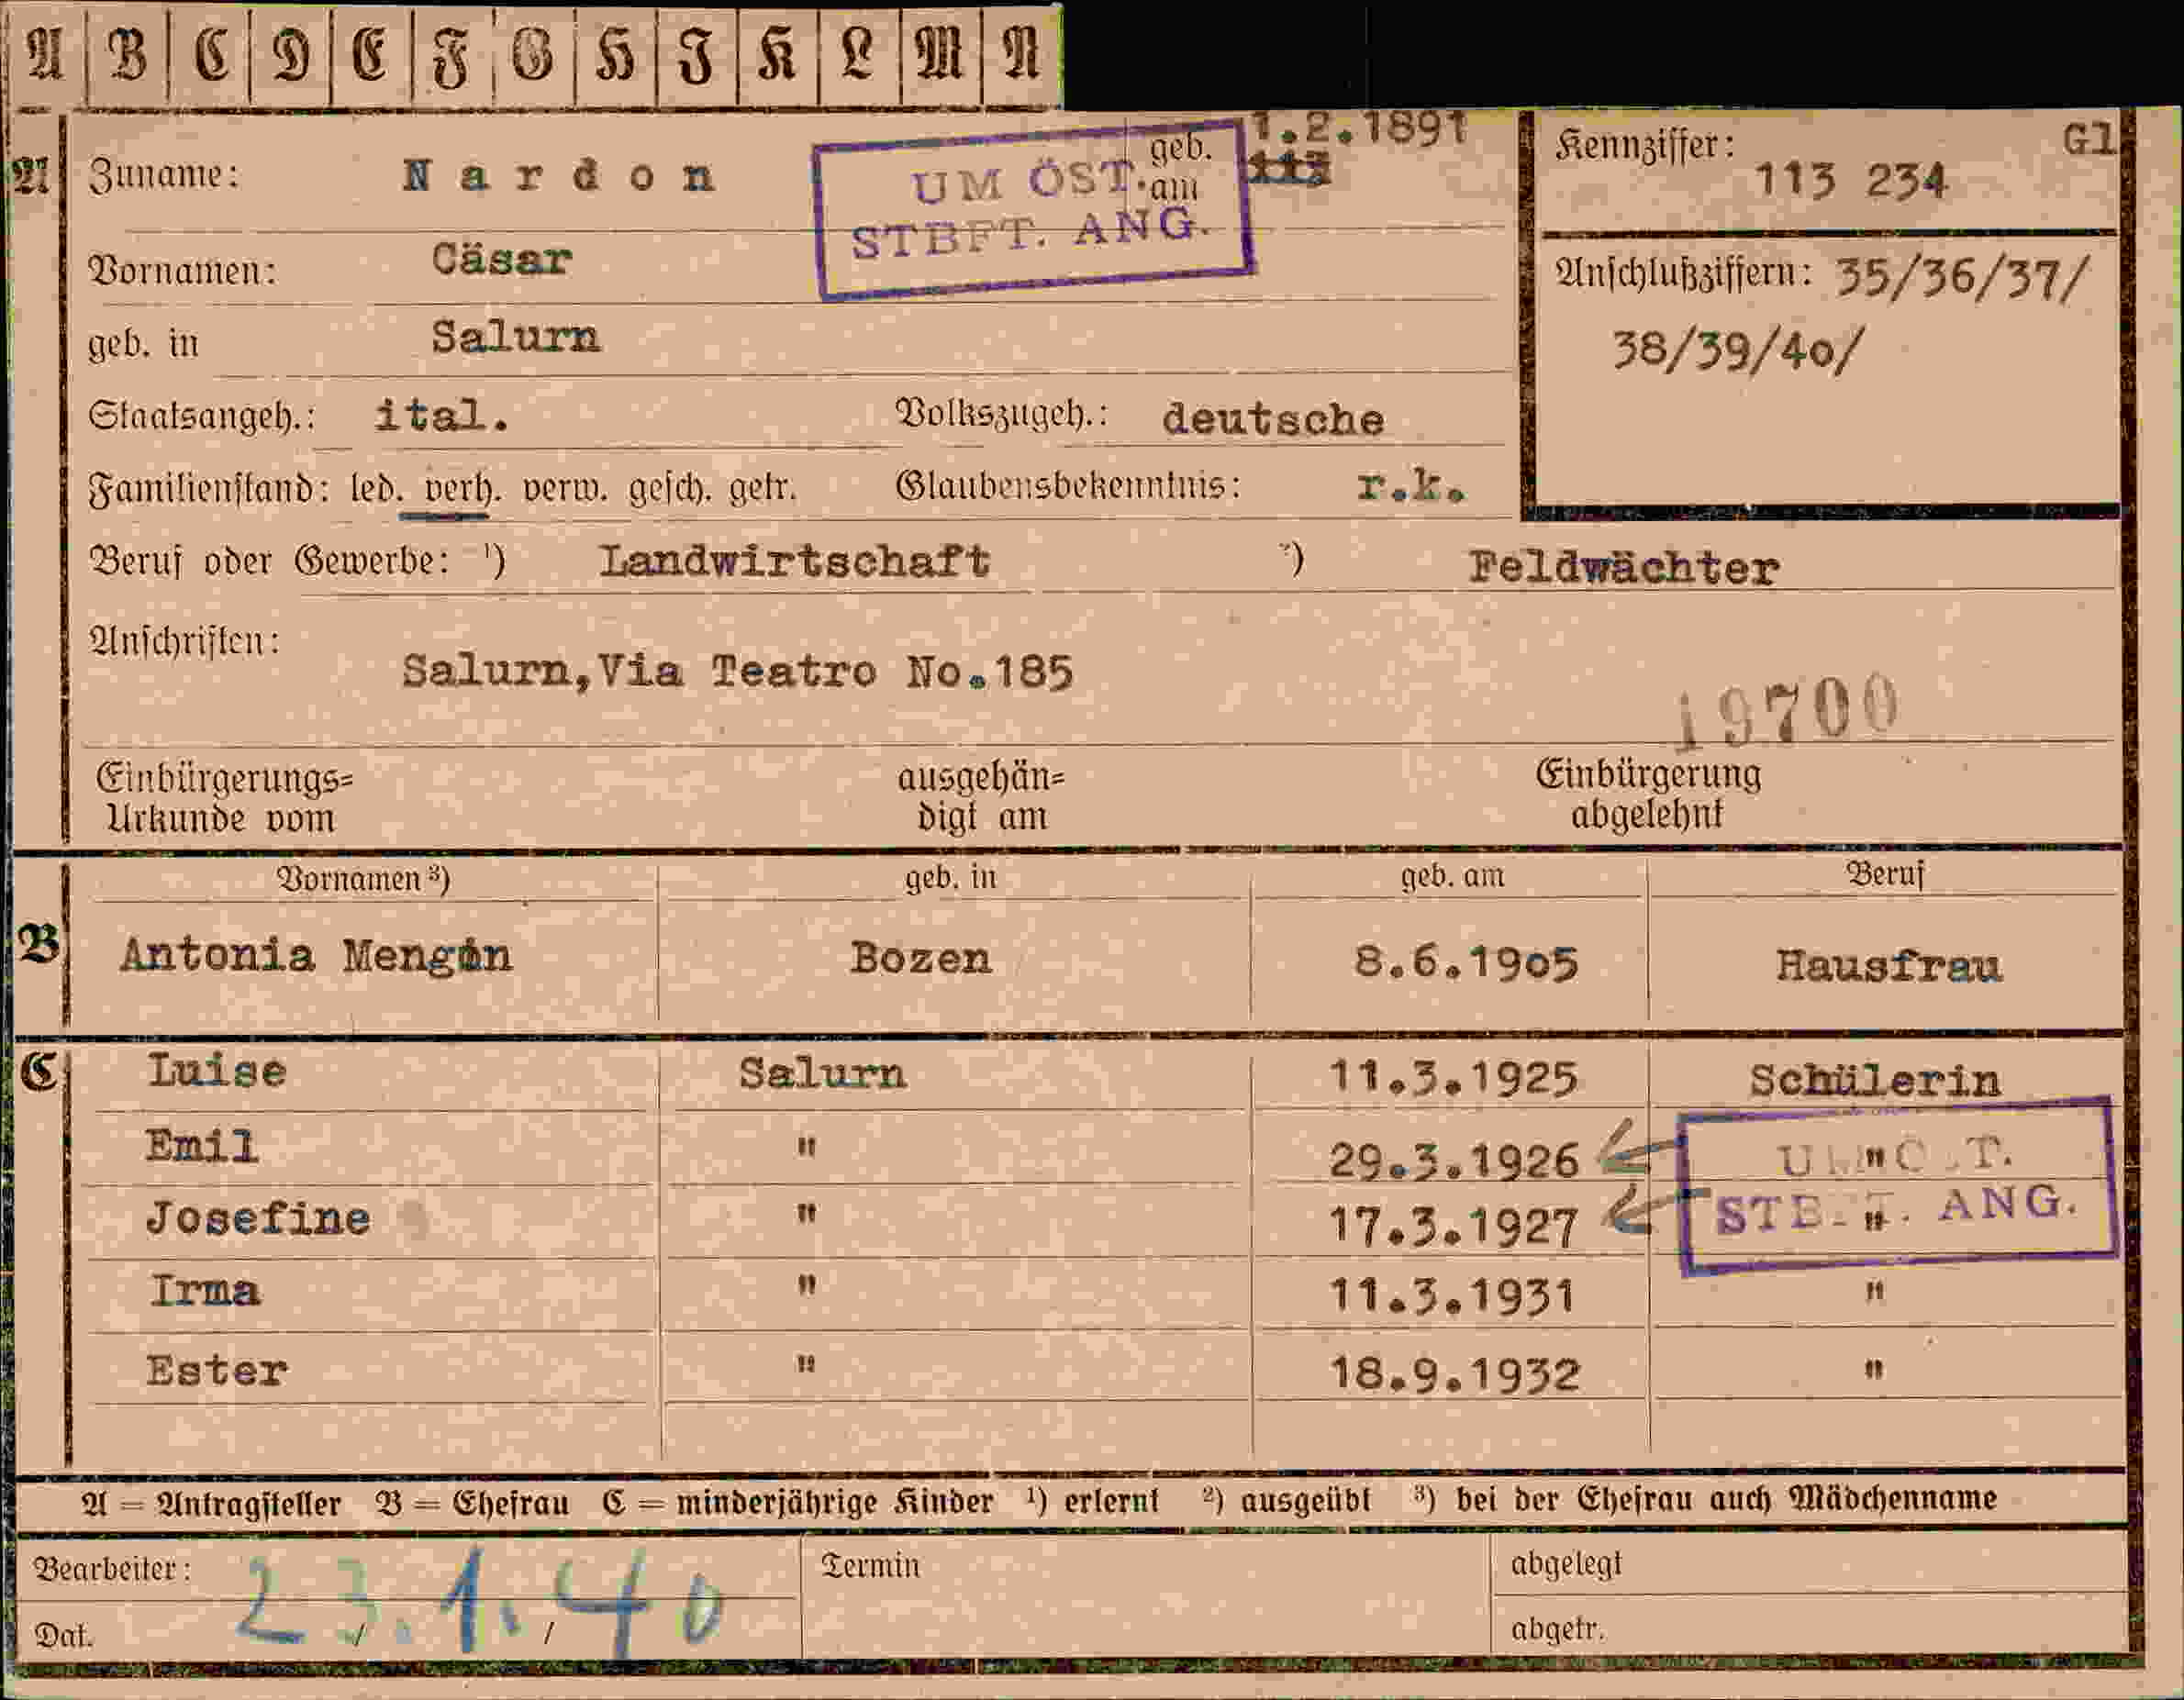 A B C D E F G H I K L M N
A Zuname: Nardon geb. am 1.2.1891
UM ÖST.
STBFT. ANG.
Kennziffer: 113 234 Gl
Vornamen: Cäsar
Anschlußziffern: 35/36/37/
38/39/40/
geb. in Salurn
Staatsangeh.: ital. Volkszugeh.: deutsche
Familienstand: led. verh. verw. gesch. getr. Glaubensbekenntnis: r.k.
Beruf oder Gewerbe: ¹) Landwirtschaft ²) Feldwächter
Anschriften: Salurn,Via Teatro No.185
19700
Einbürgerungs=
Urkunde vom
ausgehän=
digt am
Einbürgerung
abgelehnt
Vornamen ³) geb. in geb. am Beruf
B Antonia Bozen 8.6.1905 Hausfrau
C Luise Salurn 11.3.1925 Schülerin
Emil " 29.3.1926 "
Josefine " 17.3.1927 "
STB T. ANG.
Irma " 11.3.1931 "
Ester " 18.9.1932 "
A = Antragsteller B = Ehefrau C = minderjährige Kinder ¹) erlernt ²) ausgeübt ³) bei der Ehefrau auch Mädchenname
Bearbeiter: Termin abgelegt
Dat. 23.1.40 abgetr.